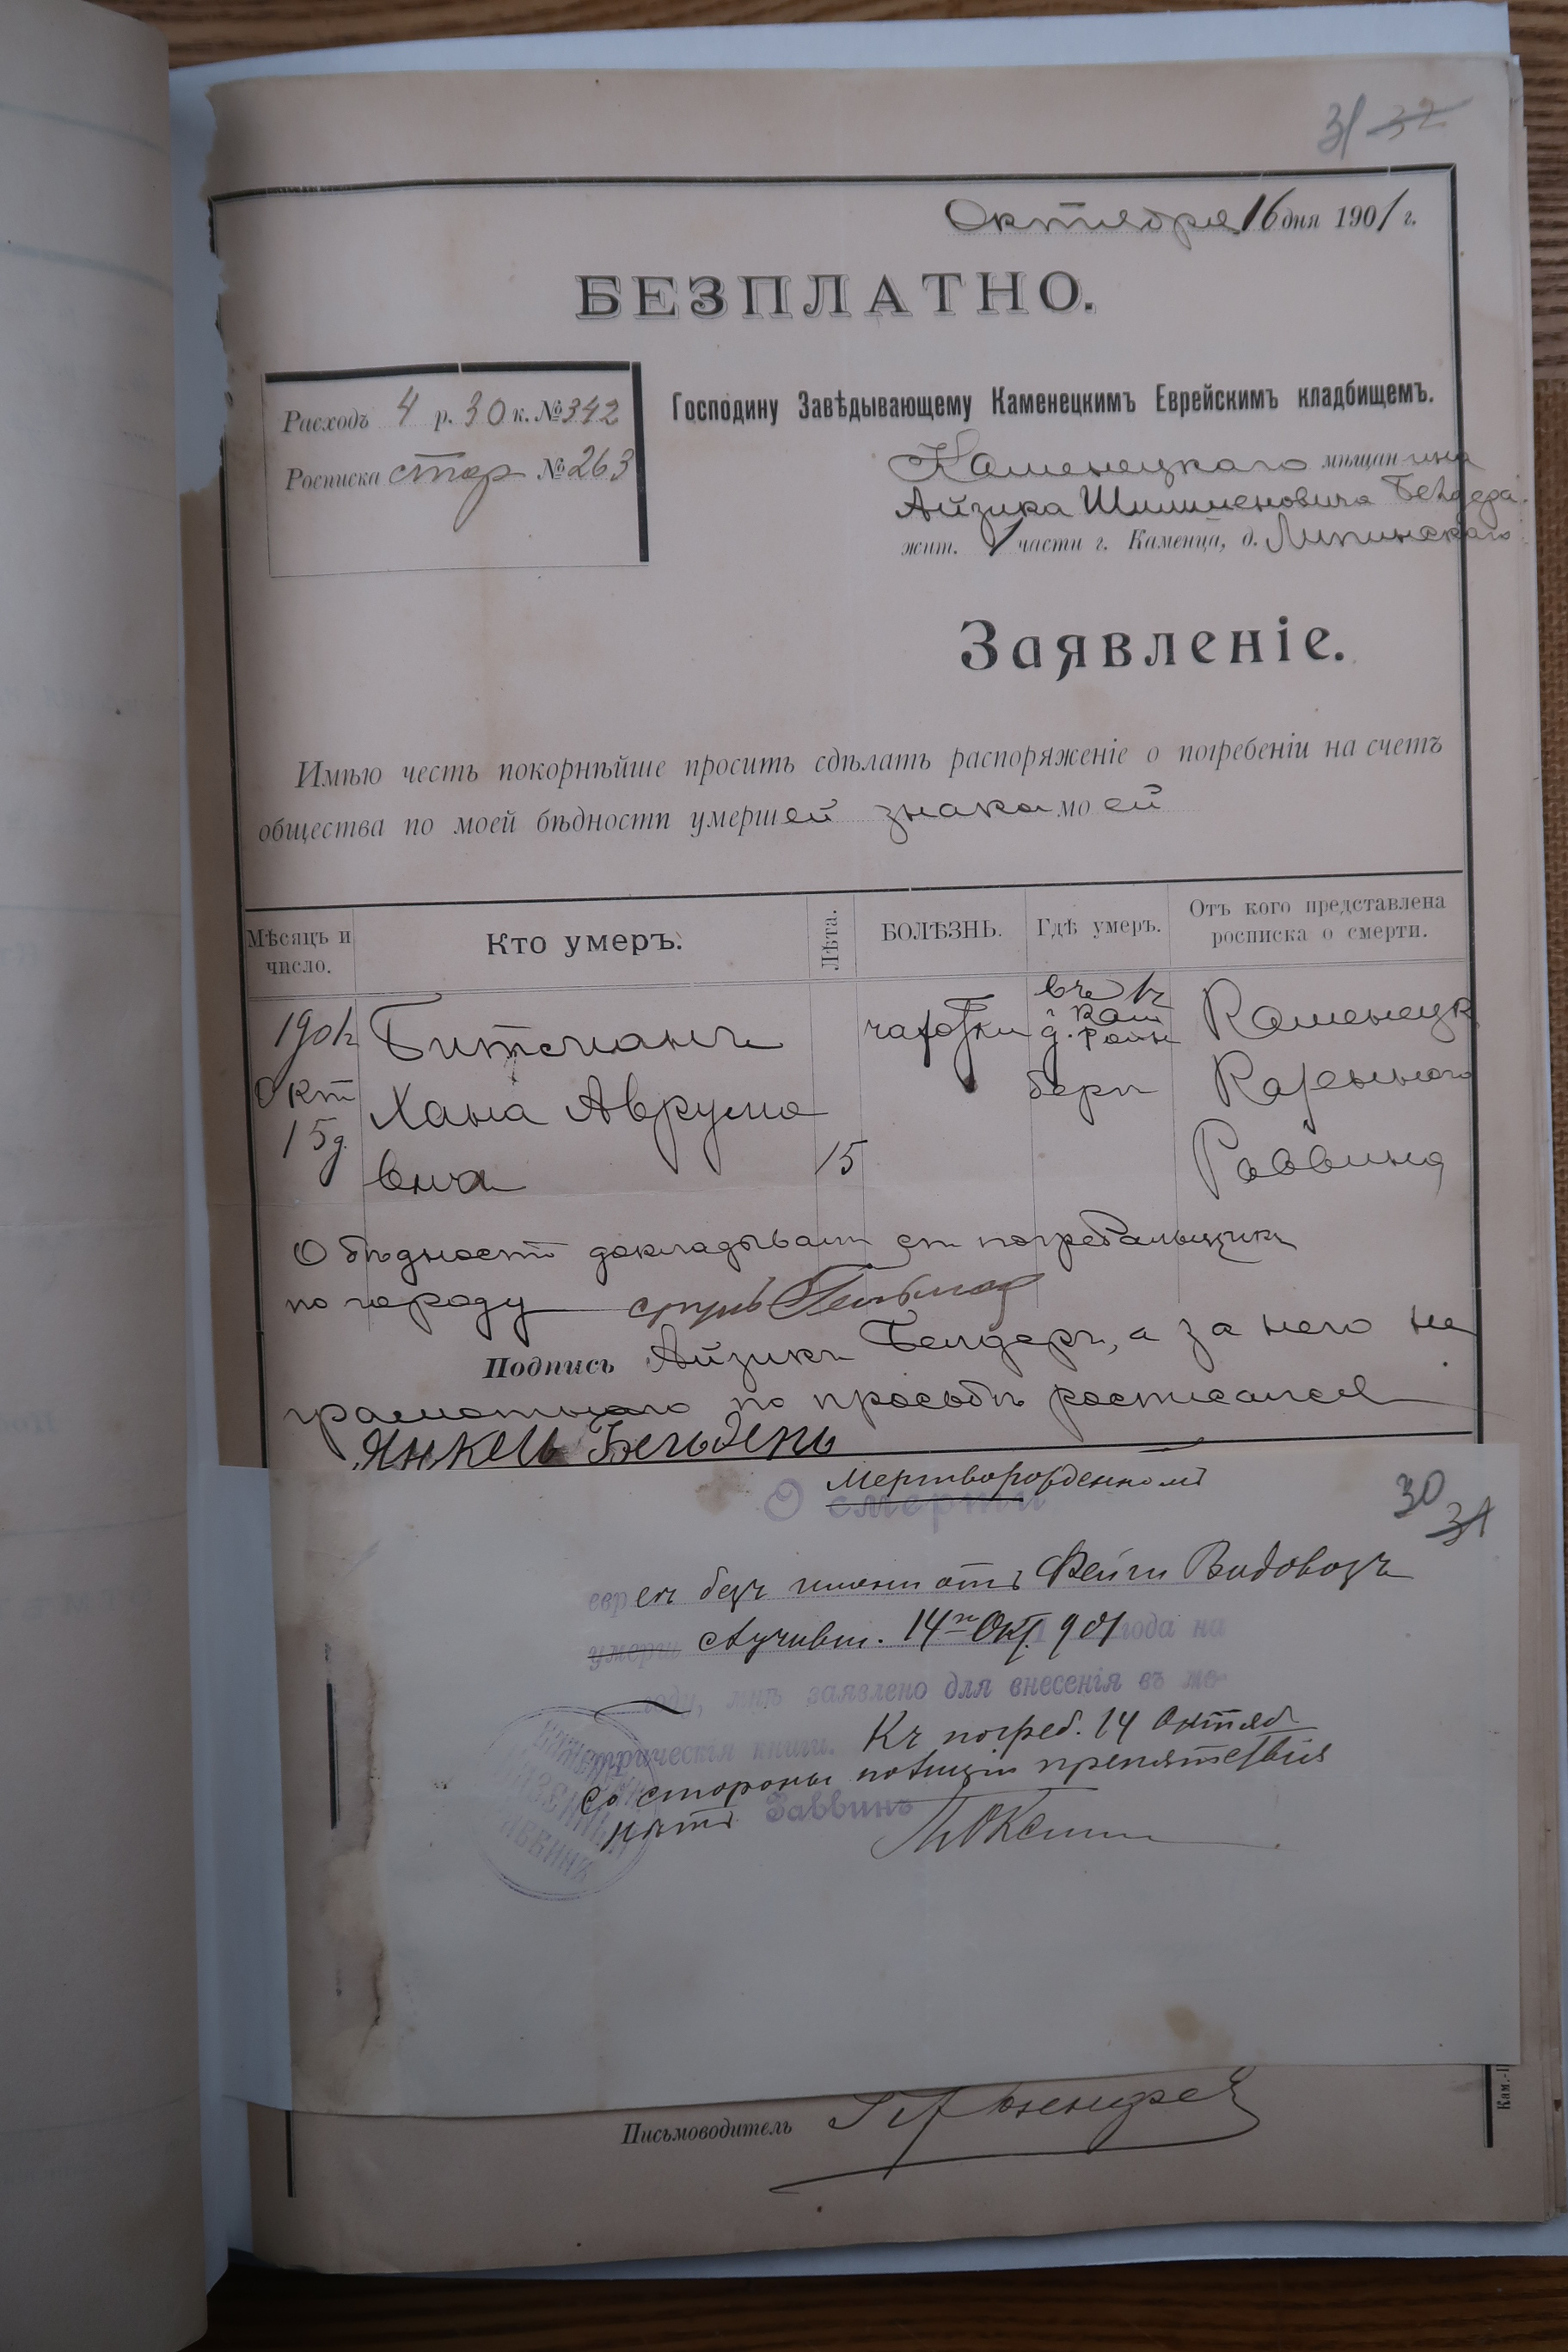 31 32
Октября 16 дня 1901 г.
БЕЗПЛАТНО.
Расходъ 4 р. 30 к. № 342
Росписка стор № 263
Господину Завѣдывающему Каменецкимъ Еврейскимъ кладбищемъ.
Каменецкаго мѣщанина
Айзика Шлименовича Бендера
жит. 1 части г. Каменца, д. Липинскаго
Заявленіе.
Имѣю честь покорнѣйше просить сдѣлать распоряженіе о погребеніи на счетъ
общества по моей бѣдности умершей знакомоей
Мѣсяцъ и число.
Кто умеръ.
Лѣта.
БОЛѢЗНЬ.
Гдѣ умеръ.
Отъ кого представлена росписка о смерти.
1901г
Окт
15 д.
Битманъ
Хана Аврумо
вна
15
чахотки
въ г.
Кам
д.
берг
Каменецк
Казеннаго
Раввина
О бѣдност докладывали погребальщики
по городу
Подпись Айзикъ Бендеръ, а за него не
грамотнаго по просьбѣ росписался
Янкель
30 31
Мертворожденномъ
О смерти
еврея безъ имени отъ Фейги
умерш случивш. 14го Окт. 901 года на
году, мнѣ заявлено для внесенія въ ме-
трическія книги. Къ погреб. 14 Октяб
со стороны полиціи препятствія
нѣтъ
Раввинъ
Письмоводитель
Кам.-П